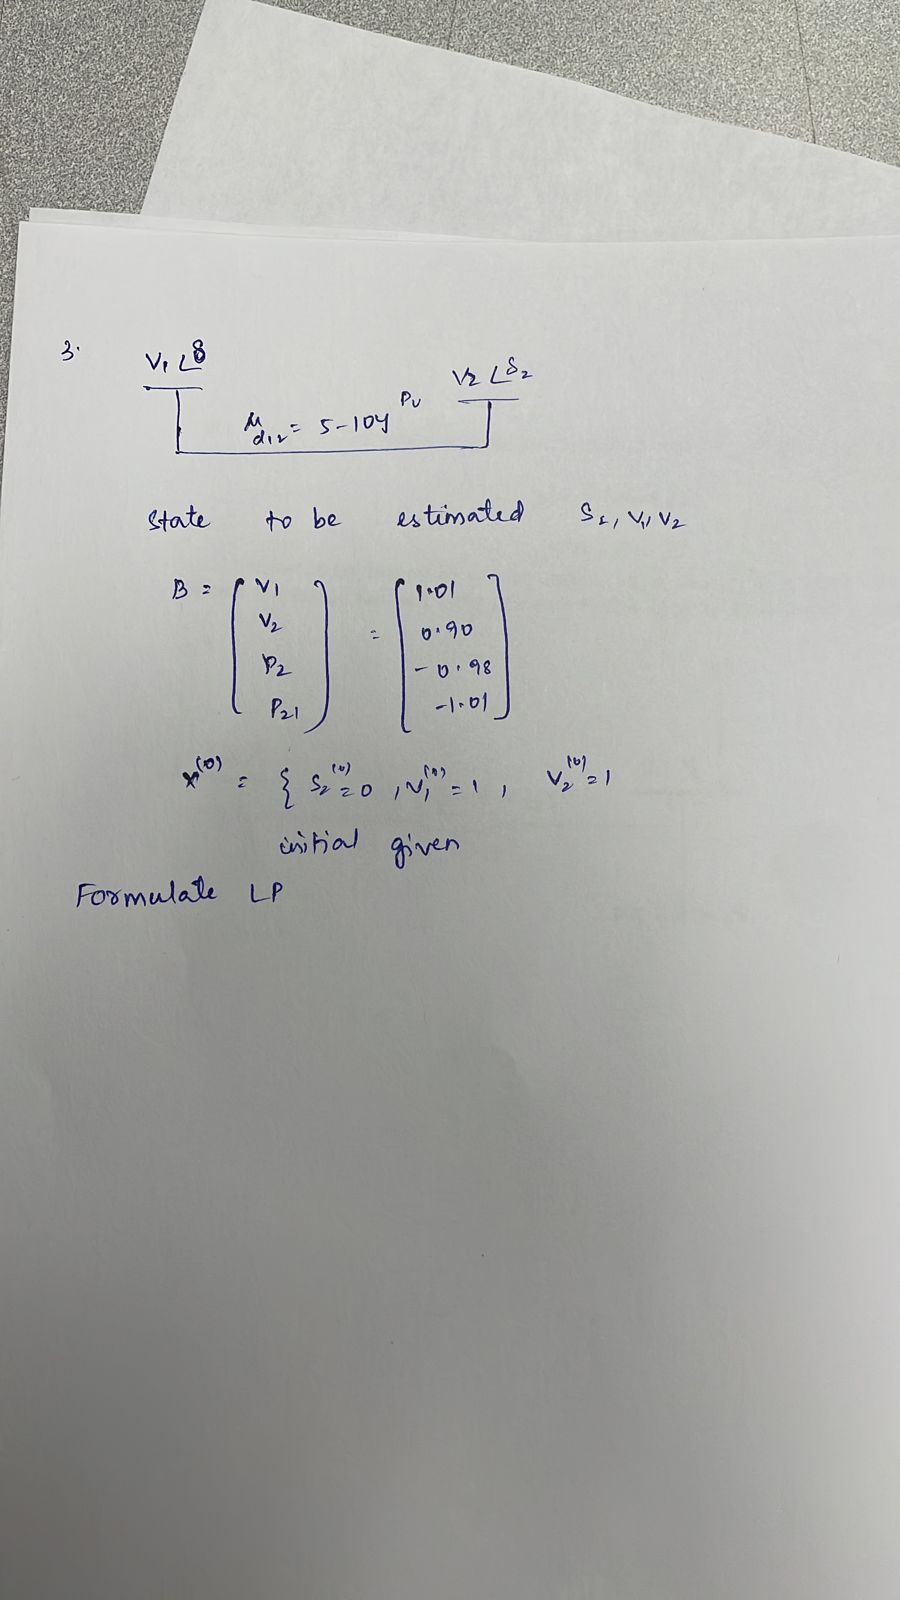 3.
V₁ ∠δ
V₂ ∠δ₂
y d₁₂ = 5-10y PU
State to be estimated S₂, V₁, V₂
B = [ V₁ V₂ P₂ P₂₁ ] = [ 1.01 0.90 -0.98 -1.01 ]
x⁽⁰⁾ = { S₂⁽⁰⁾ = 0 , V₁⁽⁰⁾ = 1 , V₂⁽⁰⁾ = 1
initial given
Formulate LP